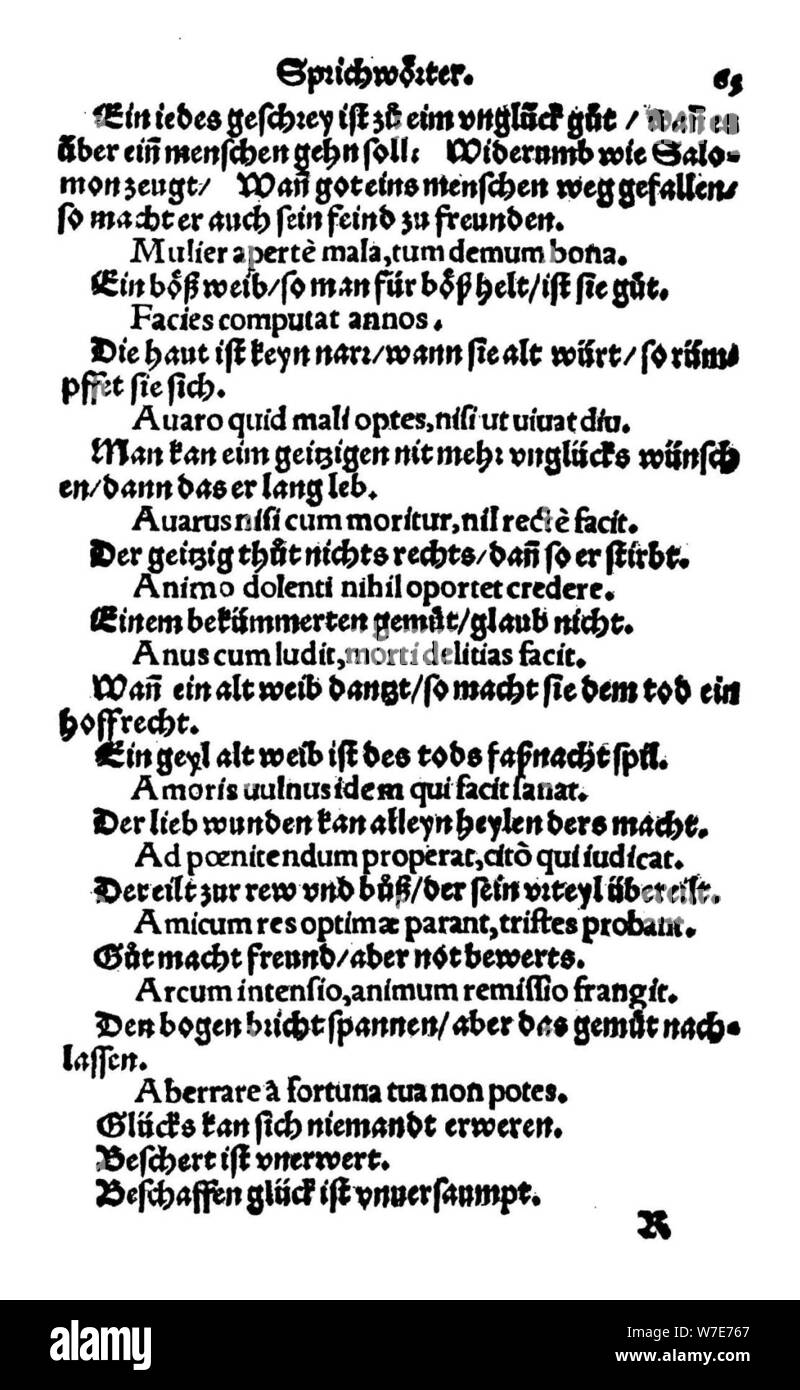 Sprichwoͤrter. 65
Ein iedes geschrey ist zuͦ eim vnglück guͦt / Wañ es
über eiñ menschen gehn soll: Widerumb wie Salo-
mon zeugt / Wañ got eins menschen weg gefallen /
so macht er auch sein feind zu freunden.
Mulier apertè mala, tum demum bona.
Ein boͤß weib / so man für boͤß helt / ist sie guͦt.
Facies computat annos.
Die haut ist keyn narr / wann sie alt würt / so rüm-
pffet sie sich.
Auaro quid mali optes, nisi ut uiuat diu.
Man kan eim geitzigen nit mehr vnglücks wünsch
en / dann das er lang leb.
Auarus nisi cum moritur, nil rectè facit.
Der geitzig thuͦt nichts rechts / dañ so er stirbt.
Animo dolenti nihil oportet credere.
Einem bekümmerten gemuͤt / glaub nicht.
Anus cum ludit, morti delitias facit.
Wañ ein alt weib dantzt / so macht sie dem tod ein
hoffrecht.
Ein geyl alt weib ist des tods faßnacht spil.
Amoris uulnus idem qui facit sanat.
Der lieb wunden kan alleyn heylen der s macht.
Ad pœnitendum properat, citò qui iudicat.
Der eilt zur rew vnd buͦß / der sein vrteyl übereilt.
Amicum res optimæ parant, tristes probant.
Guͦt macht freund / aber not bewerts.
Arcum intensio, animum remissio frangit.
Den bogen bricht spannen / aber das gemuͤt nach-
lassen.
Aberrare à fortuna tua non potes.
Glücks kan sich niemandt erweren.
Beschert ist vnerwert.
Beschaffen glück ist vnuersaumpt.
R
alamy
Image ID: W7E767
www.alamy.com